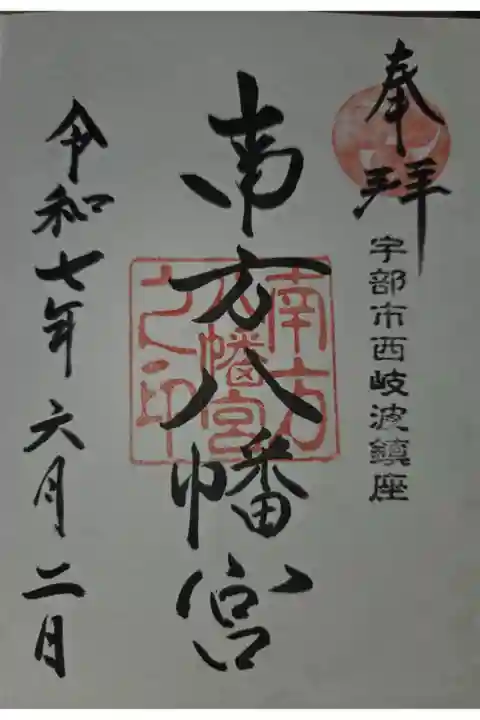 奉拝
宇部市西岐波鎮座
南方八幡宮
南方
八幡宮
之印
令和七年六月二日